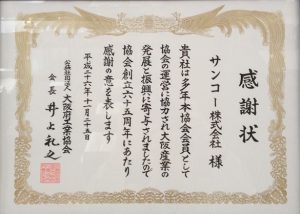 感謝状
サンコー株式会社 様
貴社は多年本協会会員として
協会の運営に協力され大阪産業の
発展と振興に寄与されましたので
協会創立六十五周年にあたり
感謝の意を表します
平成二十六年十一月二十五日
公益社団法人 大阪府工業協会
会長 井上礼之